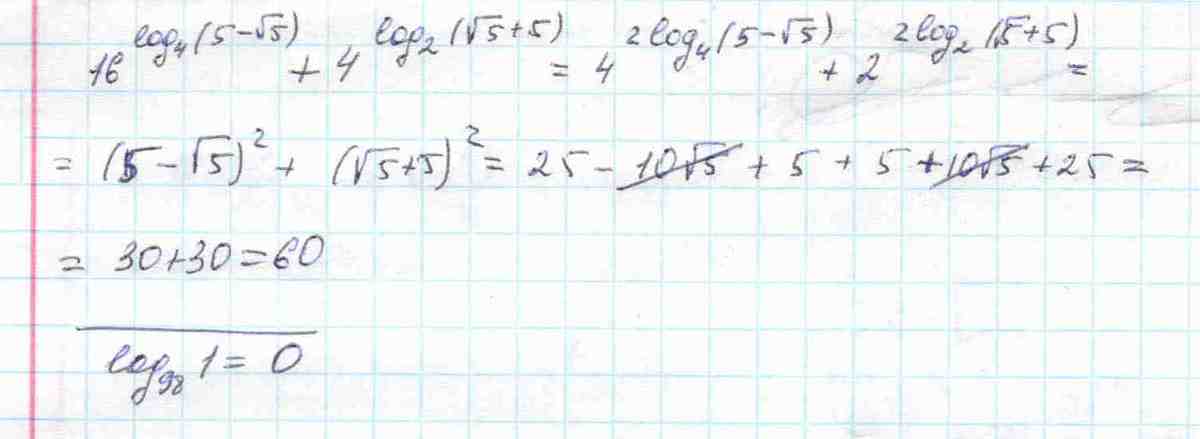 16^log₄(5-√5) + 4^log₂(√5+5) = 4^2log₄(5-√5) + 2^2log₂(√5+5) =
= (5-√5)² + (√5+5)² = 25 - 10√5 + 5 + 5 + 10√5 + 25 =
= 30+30=60
log₉₈ 1 = 0